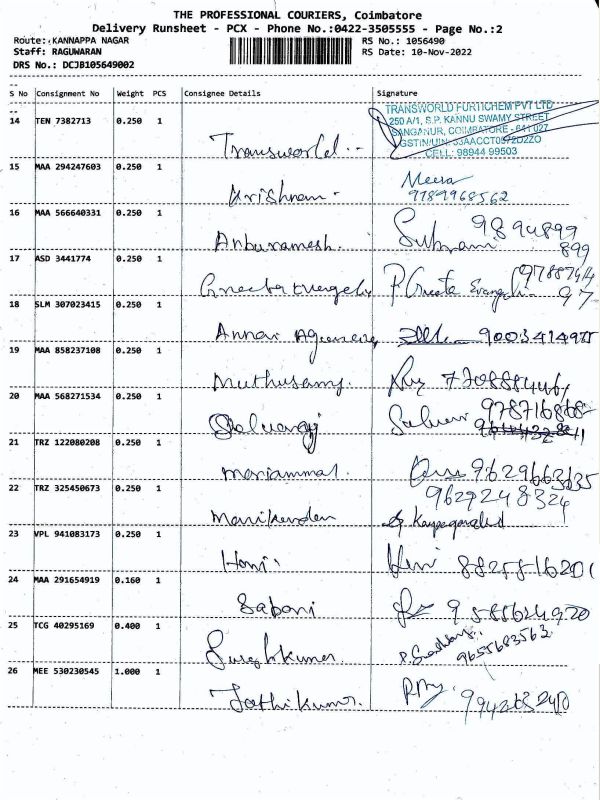 THE PROFESSIONAL COURIERS, Coimbatore
Delivery Runsheet - PCX - Phone No.:0422-3505555 - Page No.:2
Route: KANNAPPA NAGAR RS No.: 1056490
Staff: RAGUWARAN RS Date: 10-Nov-2022
DRS No.: DCJB105649002
S No Consignment No Weight PCS Consignee Details Signature
14 TEN 7382713 0.250 1
TRANSWORLD FURTICHEM PVT LTD
250 A/1, S.P. KANNU SWAMY STREET
SANGANUR, COIMBATORE - 641 027
CELL: 98944 99503
Transworld
15 MAA 294247603 0.250 1 Meera
Krishnan 9789968562
16 MAA 566640331 0.250 1 9894899
Anburamesh. Subrani 899
17 ASD 3441774 0.250 1
P Greeta
18 SLM 307023415 0.250 1
Annai 9003414975
19 MAA 858237108 0.250 1
Muthusamy.
20 MAA 568271534 0.250 1
21 TRZ 122080208 0.250 1
Mariammal. 9629663635
22 TRZ 325450673 0.250 1 9629248324
Manikandan
23 VPL 941083173 0.250 1
Hani 8825816201
24 MAA 291654919 0.160 1
Sabani 9588624920
25 TCG 40295169 0.400 1
9655683563
26 MEE 530230545 1.000 1
Jothikumar.